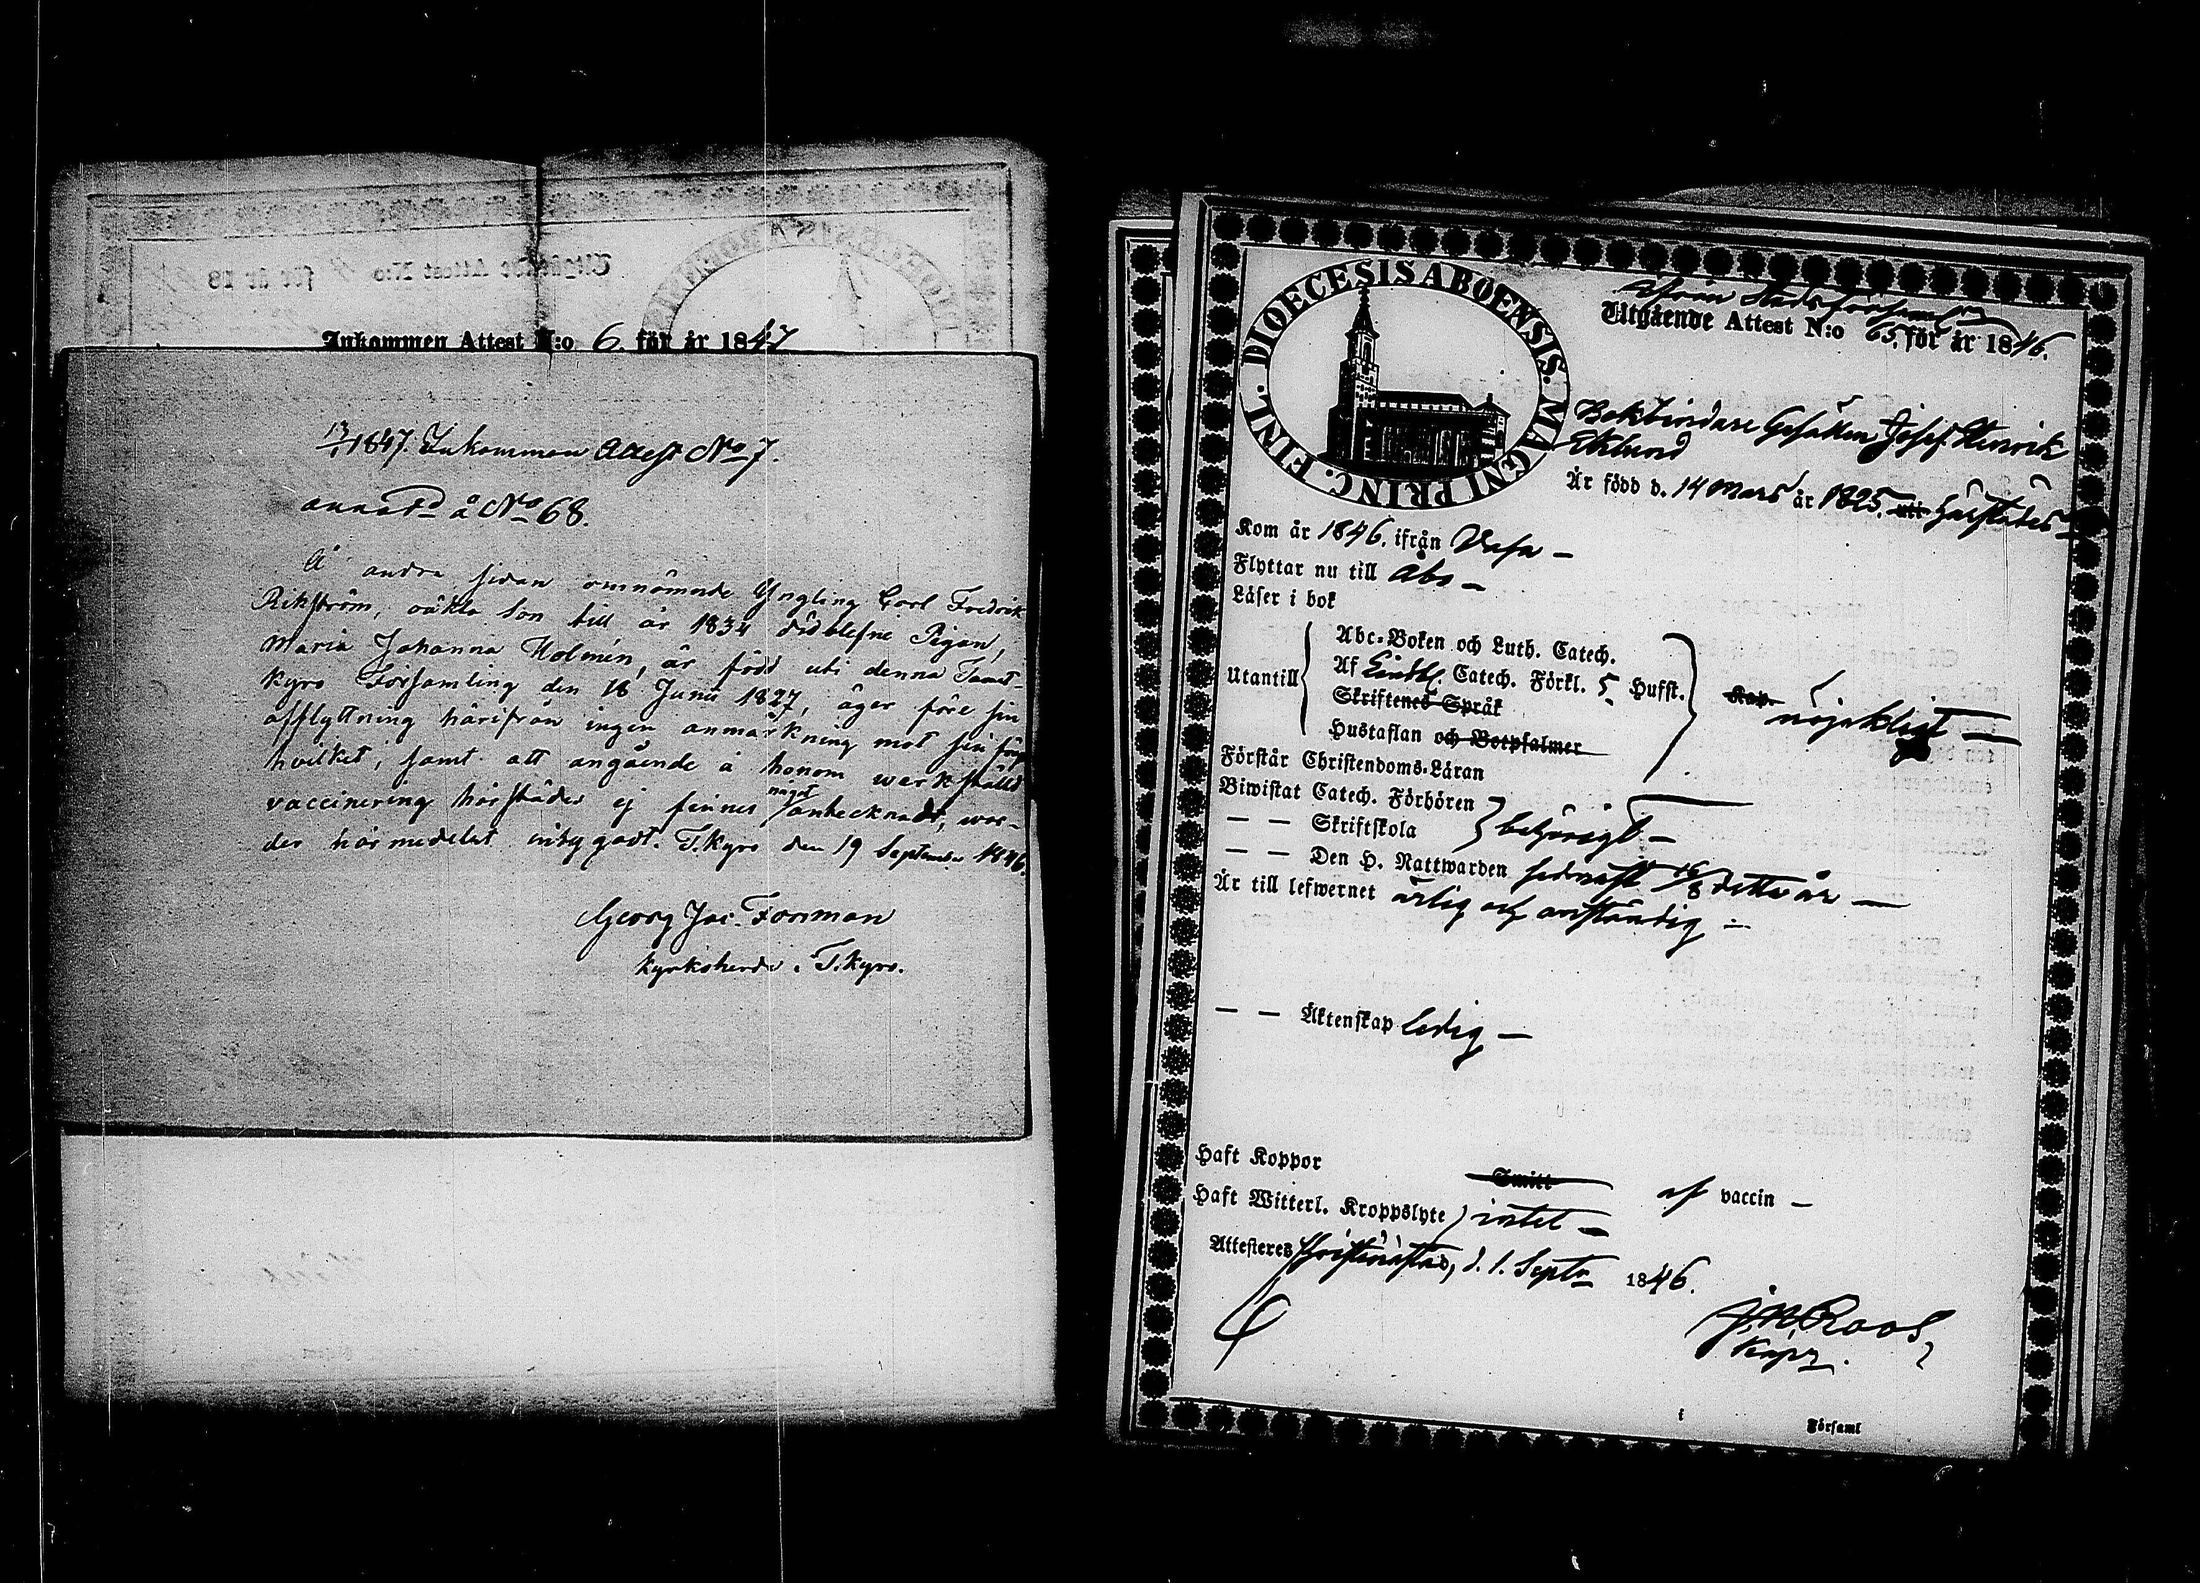 Inkommen Attest N:o 6. för år 1847
13/1 1847. Inkommen Attest No 7.
annoterd å No 68.
Å andra sidan omnämnde Yngling Carl Fredrik
Rikström, oäkta son till år 1834 död blefne Pigan,
Maria Johanna Holmén, är född uti denna Tavast-
kyro Församling den 18 Junii 1827, äger före sin
afflyttning härifrån ingen anmärkning mot sin frejd
hvilket, samt att angående å honom werkställd
vaccinering härstädes ej finnes något antecknadt, war-
der härmedelst intygadt. T.kyro den 19 September 1846.
Georg Jac. Forsman
Kyrkoherde i T.kyro.
DIOECESIS ABOENSIS. MAGNI PRINC. FINL.
ifrån Stadsförsaml.
Utgående Attest N:o 65. för år 1846.
Bokbindare Gesällen Josef Henrik
Eklund
Är född d. 14 Mars år 1825. uti härstädes
Kom år 1846. ifrån Vasa –
Flyttar nu till Åbo –
Läser i bok
Abc-Boken och Luth. Catech.
Utantill Af Catech. Förkl. 5 Hufst. Kap. nöjaktigt –
Skriftenes Språk
Hustaflan och Botpsalmer
Förstår Christendoms-Läran
Biwistat Catech. Förhören
— — Skriftskola behörigt –
— — Den H. Nattwarden sednast 16/8 detta år —
Är till lefwernet ärlig och anständig –
— — Äktenskap ledig –
Haft Koppor Smitt af vaccin –
Haft Witterl. Kroppslyte intet –
Attesteras Christinestad, d. 1. Septr 1846.
Roos
Kapn.
i Församl